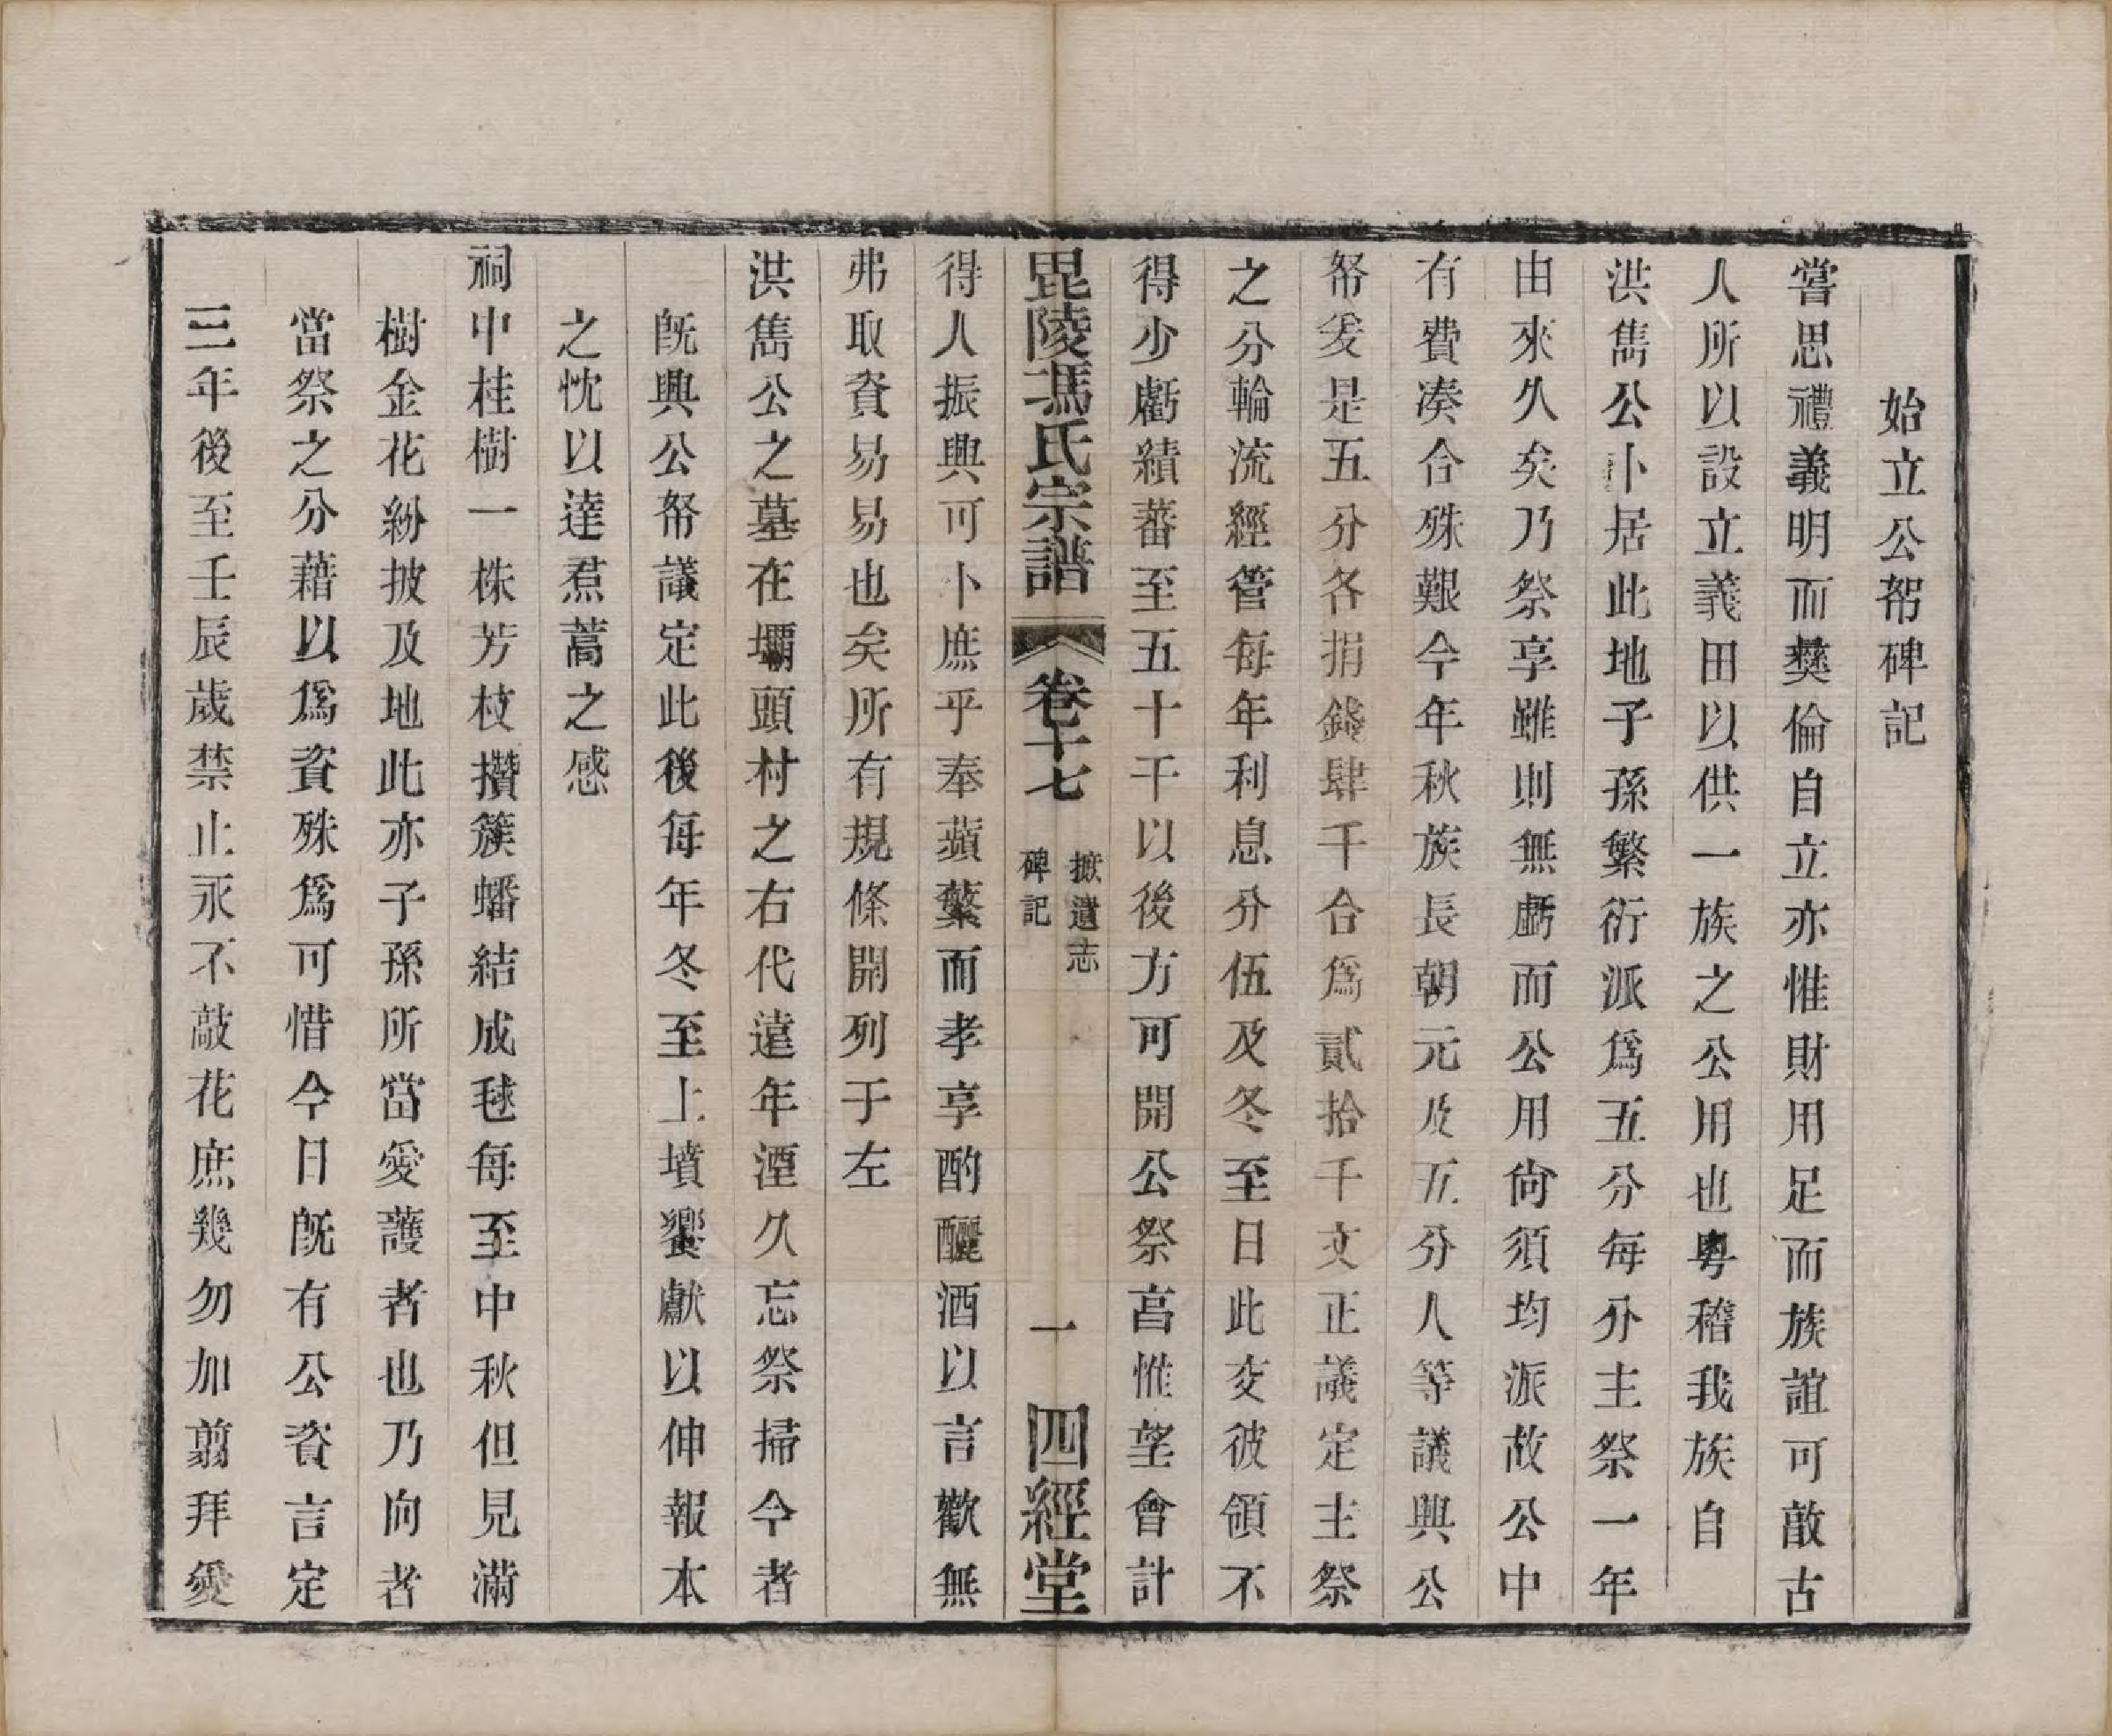 始立公帮碑記
嘗思禮義明而彝倫自立亦惟財用足而族誼可敵古
人所以設立義田以供一族之公用也粵稽我族自
洪雋公卜居此地子孫繁衍派爲五分每分主祭一年
由來久矣乃祭享雖則無虧而公用尙須均派故公中
有費凑合殊艱今年秋族長朝元及五分人等議興公
帑爰是五分各捐錢肆千合爲貳拾千文正議定主祭
之分輪流經管每年利息分伍及冬至日此交彼領不
得少虧積蓄至五十千以後方可開公祭言惟望會計
毘陵馮氏宗譜 卷十七 摭遺志 碑記 一 四經堂
得人振興可卜庶乎奉蘋蘩而孝享酌釃酒以言歡無
弗取資易易也矣所有規條開列于左
洪雋公之墓在壩頭村之右代遠年湮久忘祭掃今者
旣興公帑議定此後每年冬至上墳饗獻以伸報本
之忱以達焄蒿之感
祠中桂樹一株芳枝攢簇蟠結成毬每至中秋但見滿
樹金花紛披及地此亦子孫所當愛護者也乃向者
當祭之分藉以爲資殊爲可惜今日旣有公資言定
三年後至壬辰歲禁止永不敲花庶幾勿加翦拜愛